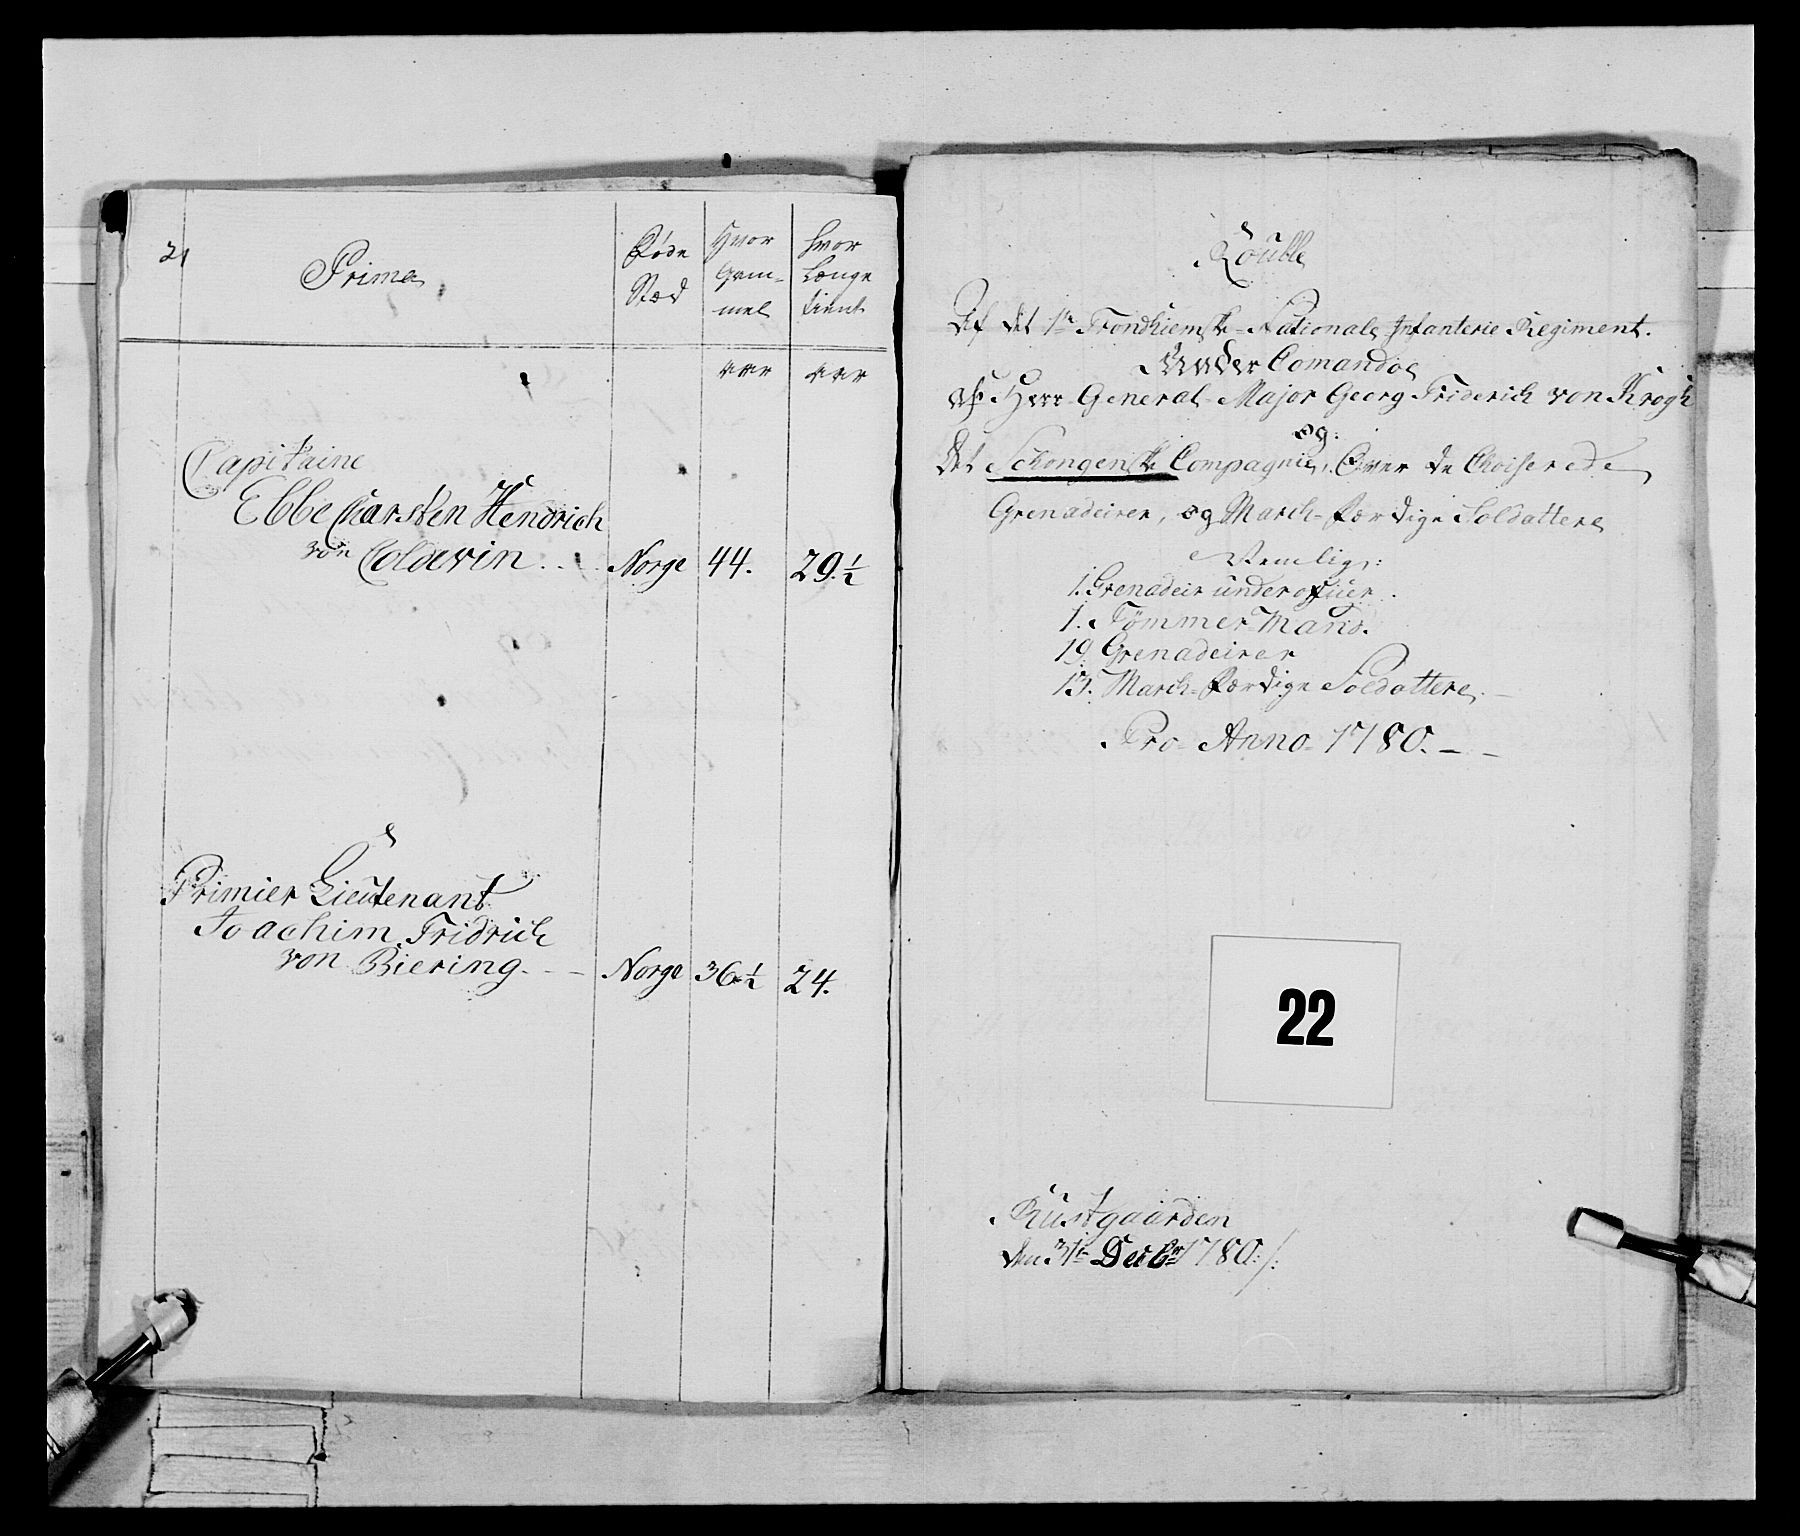 21
Prima
Føde
Stæd
Hvor
Gam-
mel
hvor
Længe
tient
aar
aar
Capitaine
Ebbe Carsten Hendrich
von Coldevin . . . Norge 44. 29.½
Primier Lieutenant
Joachim Fridrich
von Biering. - - Norge 36½ 24.
Roulle
Af det 1te Trondhiemske Nationale Infanterie Regiment.
Under Comando
af Herr General-Major Georg Friderich von Krogh
og:
det Schongenske Compagnie, Over de Choiserede
Grenadeirer, og March-Færdige Soldattere
Nemlig:
1. Grenadeir underofficer.
1. Tømmer-Mand.
19. Grenadeirer
13. March-Færdige Soldattere. -
Pro Anno 1780. - -
22
Rustgaarden
den 31te Decbr 1780./.